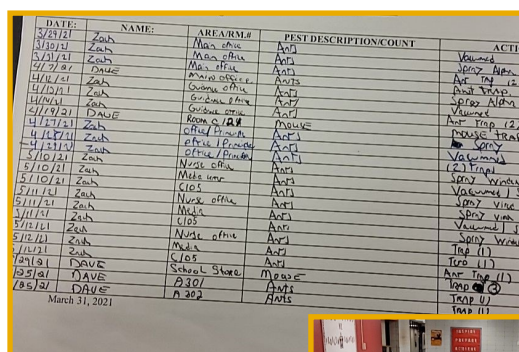 DATE: NAME: AREA/RM.# PEST DESCRIPTION/COUNT ACTI
3/29/21 Zach Main office Ants Vacumed
3/30/21 Zach Main office Ants Spray Alpn
3/31/21 Zach Main office Ants Ant Trap (2
4/7/21 DAVE MAIN OFFICE ANTS ANT TRAP.
4/12/21 Zach Guidance office Ants Spray Alpn
4/13/21 Zach Guidance office Ants
4/14/21 Zach Guidance office Ants Ant Trap (2)
4/19/21 DAVE Room C124 MOUSE MOUSE TRAP
4/27/21 Zach office/Principle Ants Spray
Zach office/Principle Ants Vacummed
Zach office/Principle Ants (2) Traps
5/10/21 Zach Nurse office Ants Spray
5/10/21 Zach Media Ants Vacuumed
5/10/21 Zach C105 Ants Spray
5/11/21 Zach Nurse office Ants Spray
5/11/21 Zach Media Ants
5/11/21 Zach C105 Ants Spray
5/12/21 Zach Nurse office Ants Trap (1)
5/12/21 Zach Media Ants Trap (1)
5/12/21 Zach C105 Ants Ant Trap (1)
DAVE School Store MOUSE TRAP
/25/21 DAVE A301 ANTS TRAP (1)
/25/21 DAVE A302 ANTS TRAP (1)
March 31, 2021